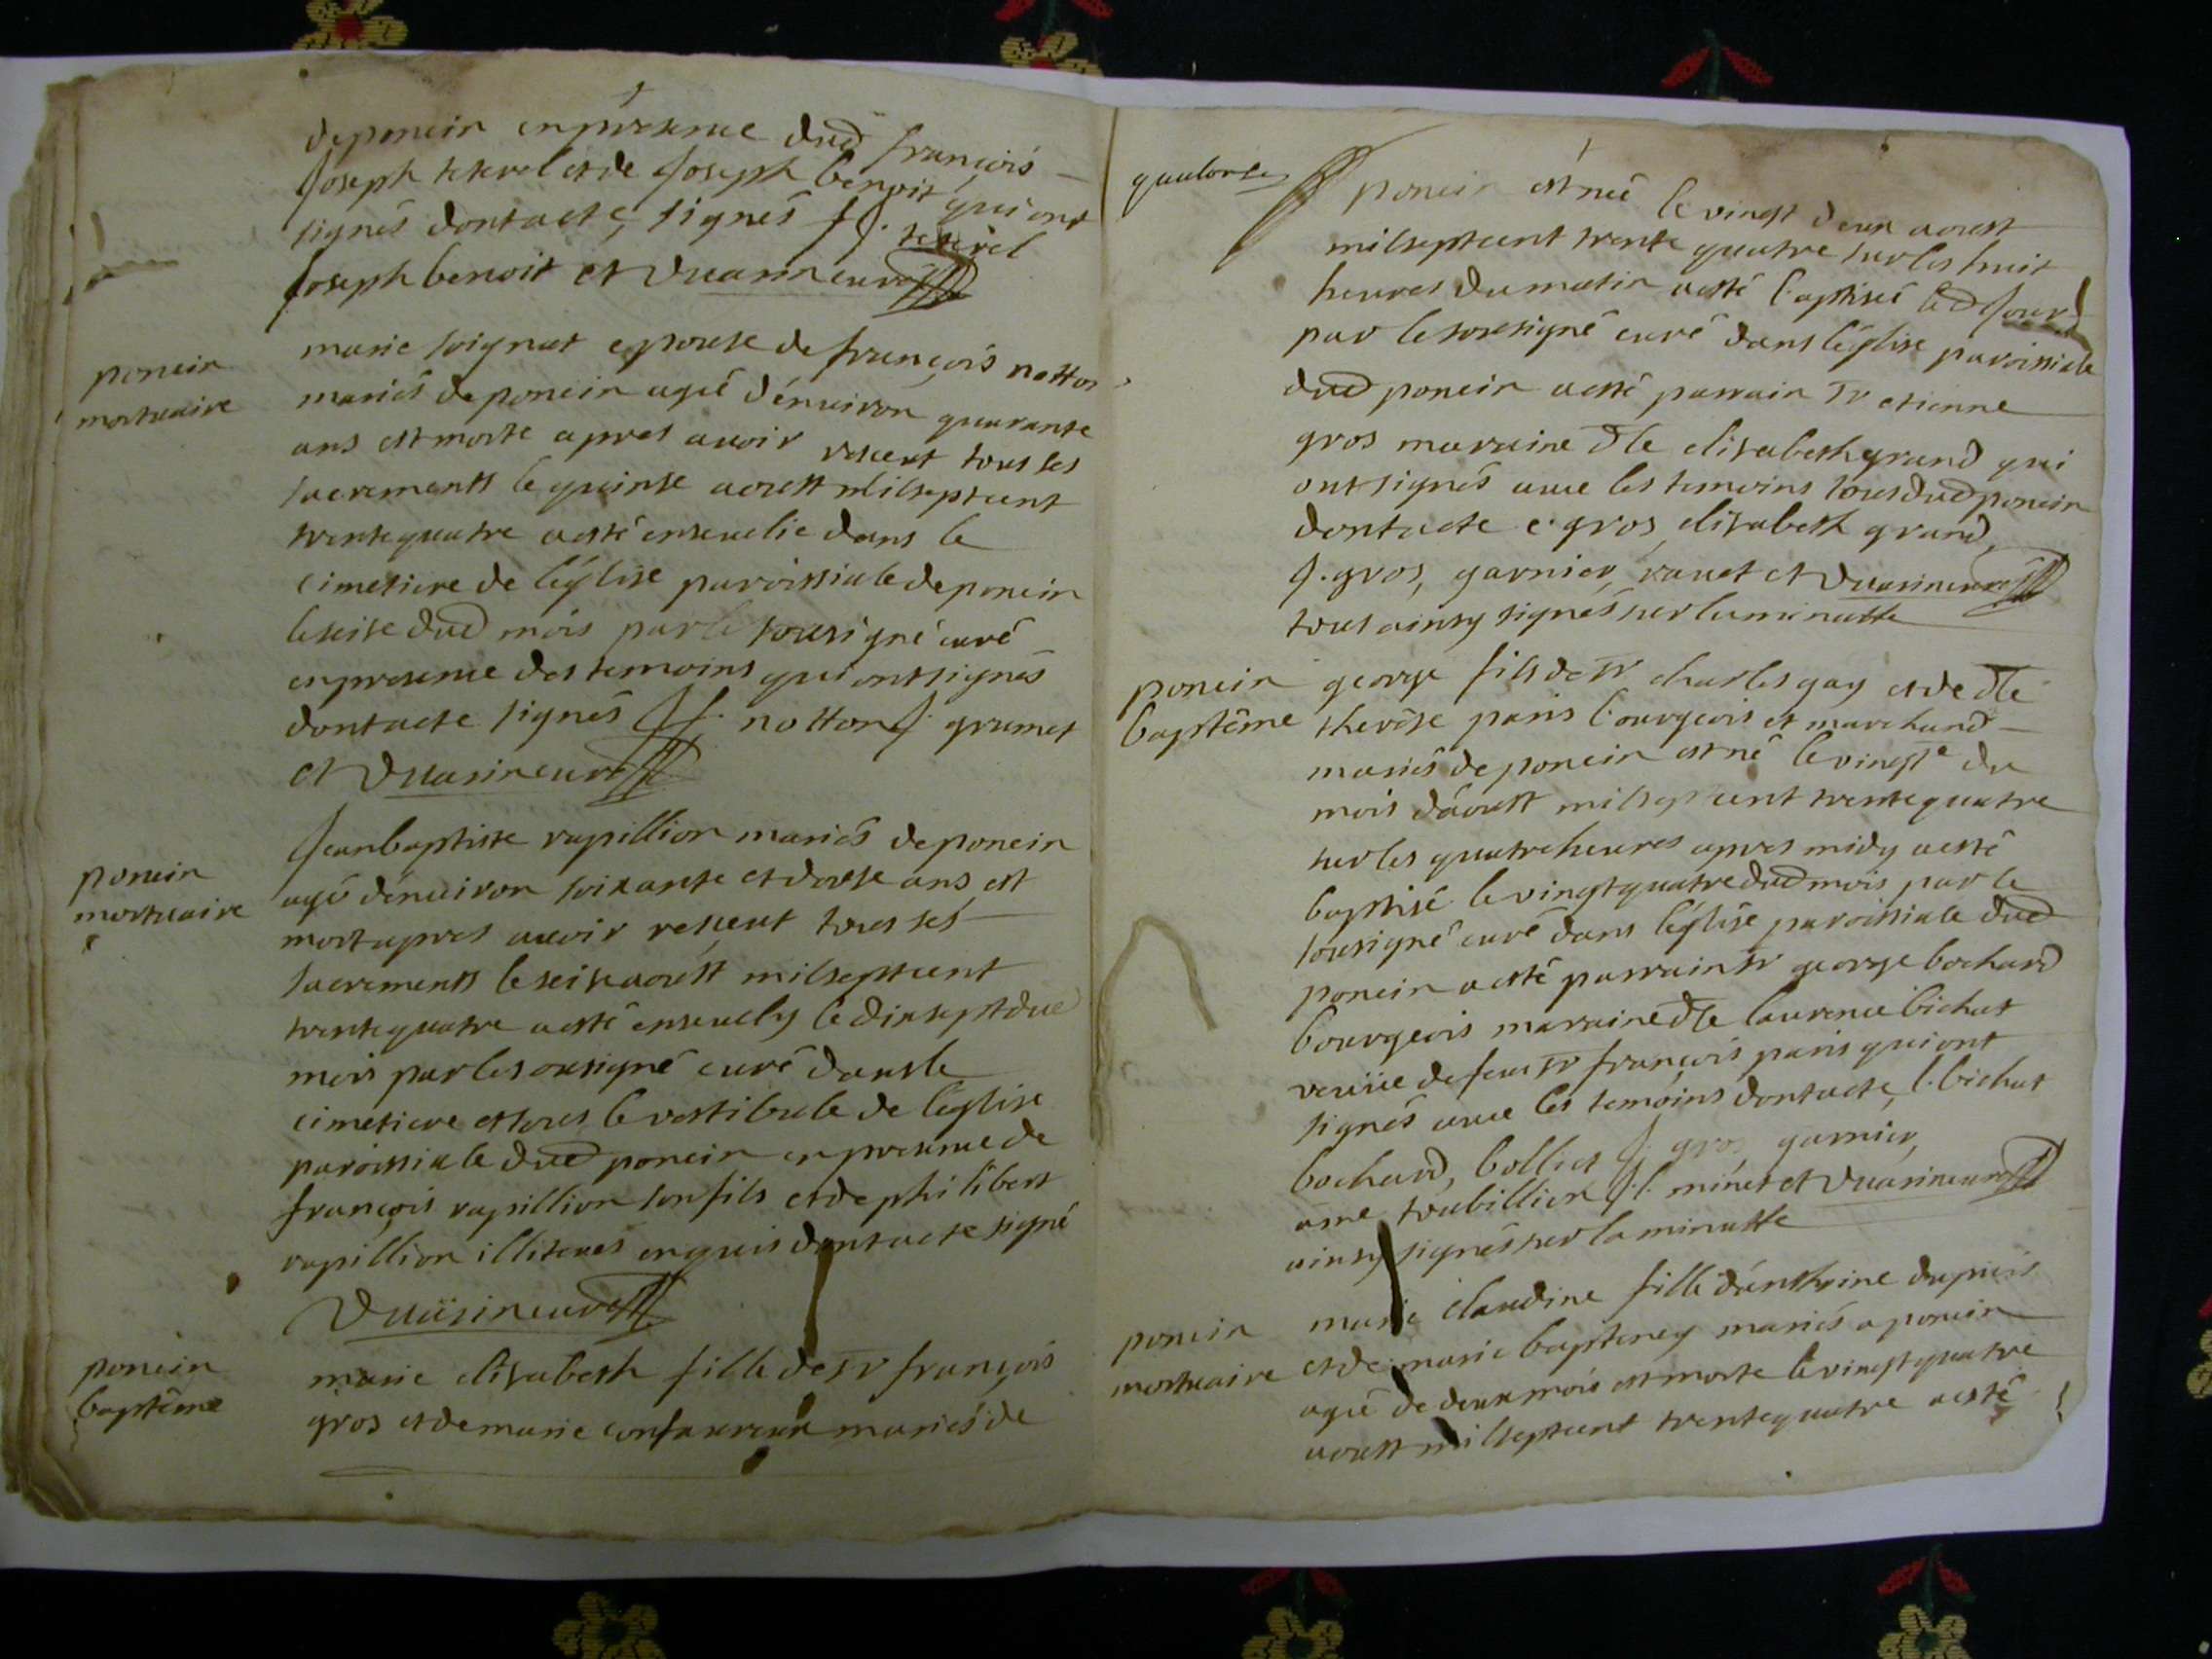 deponcin enpresence dud françois
Joseph teterel et de Joseph benoit qui ont
signés dontacte, signés f J. teterel
Joseph benoit et Duuarin curé
poncin
mortuaire
marie soignat epouse de françois notton
mariés de poncin agée d'enuiron quarante
ans est morte apres auoir reseut tous ses
sacrements le quinse aoust milseptcent
trentequatre aesté enseuelie dans le
cimetiere de l'église paroissiale deponcin
leseise dud mois par le sousigné curé
enpresence des temoins qui ontsignés
dontacte signés J f. notton J. grumet
et Duuarin curé
poncin
mortuaire
Jeanbaptiste rapillion mariés deponcin
agé d'enuiron soixante et douse ans est
mortapres auoir reseut tous ses
sacrements leseise aoust milseptcent
trentequatre aesté enseuely le dixsept dud
mois par lesousigné curé dans le
cimetiere et sous le vestibule de l'eglise
paroissiale dud poncin en presence de
françois rapillion son fils et de philibert
rapillion illiterés enquis dontacte signé
Duuarin curé
poncin
baptême
marie elisabeth fille de sr françois
gros et de marie mariés de
poncin est née le vingt deux aoust
milseptcent trente quatre sur les huit
heures du matin aesté baptisée led Jour
par lesousigné curé dans l'église paroissiale
dud poncin aesté parrain sr etienne
gros maraine dlle elisabeth grand qui
ont signés auec les temoins tous dud poncin
dontacte e. gros, elisabeth grand,
J. gros, garnier, rauet et Duuarin curé
tous ainsy signés sur la minutte
poncin
baptême
george fils de sr charles gay et de dlle
therèse paris bourgeois et marchand
mariés de poncin est né le vingte du
mois d'aoust milseptcent trentequatre
sur les quatre heures apres midy aesté
baptisé le vingtquatre dud mois par le
sousigné curé dans l'église paroissiale dud
poncin aesté parrain sr george bochard
bourgeois maraine dlle laurence bichat
veuüe de feu sr françois paris qui ont
signés auec les temoins dontacte, l. bichat
bochard, bolliet J. gros, garnier,
ame toubillion J. l. minet et Duuarin curé
ainsy signés sur la minutte
poncin
mortuaire
marie claudine fille d'anthoine dupuis
et de marie mariés a poncin
agée de deux mois est morte le vingtquatre
aoust milseptcent trentequatre aesté